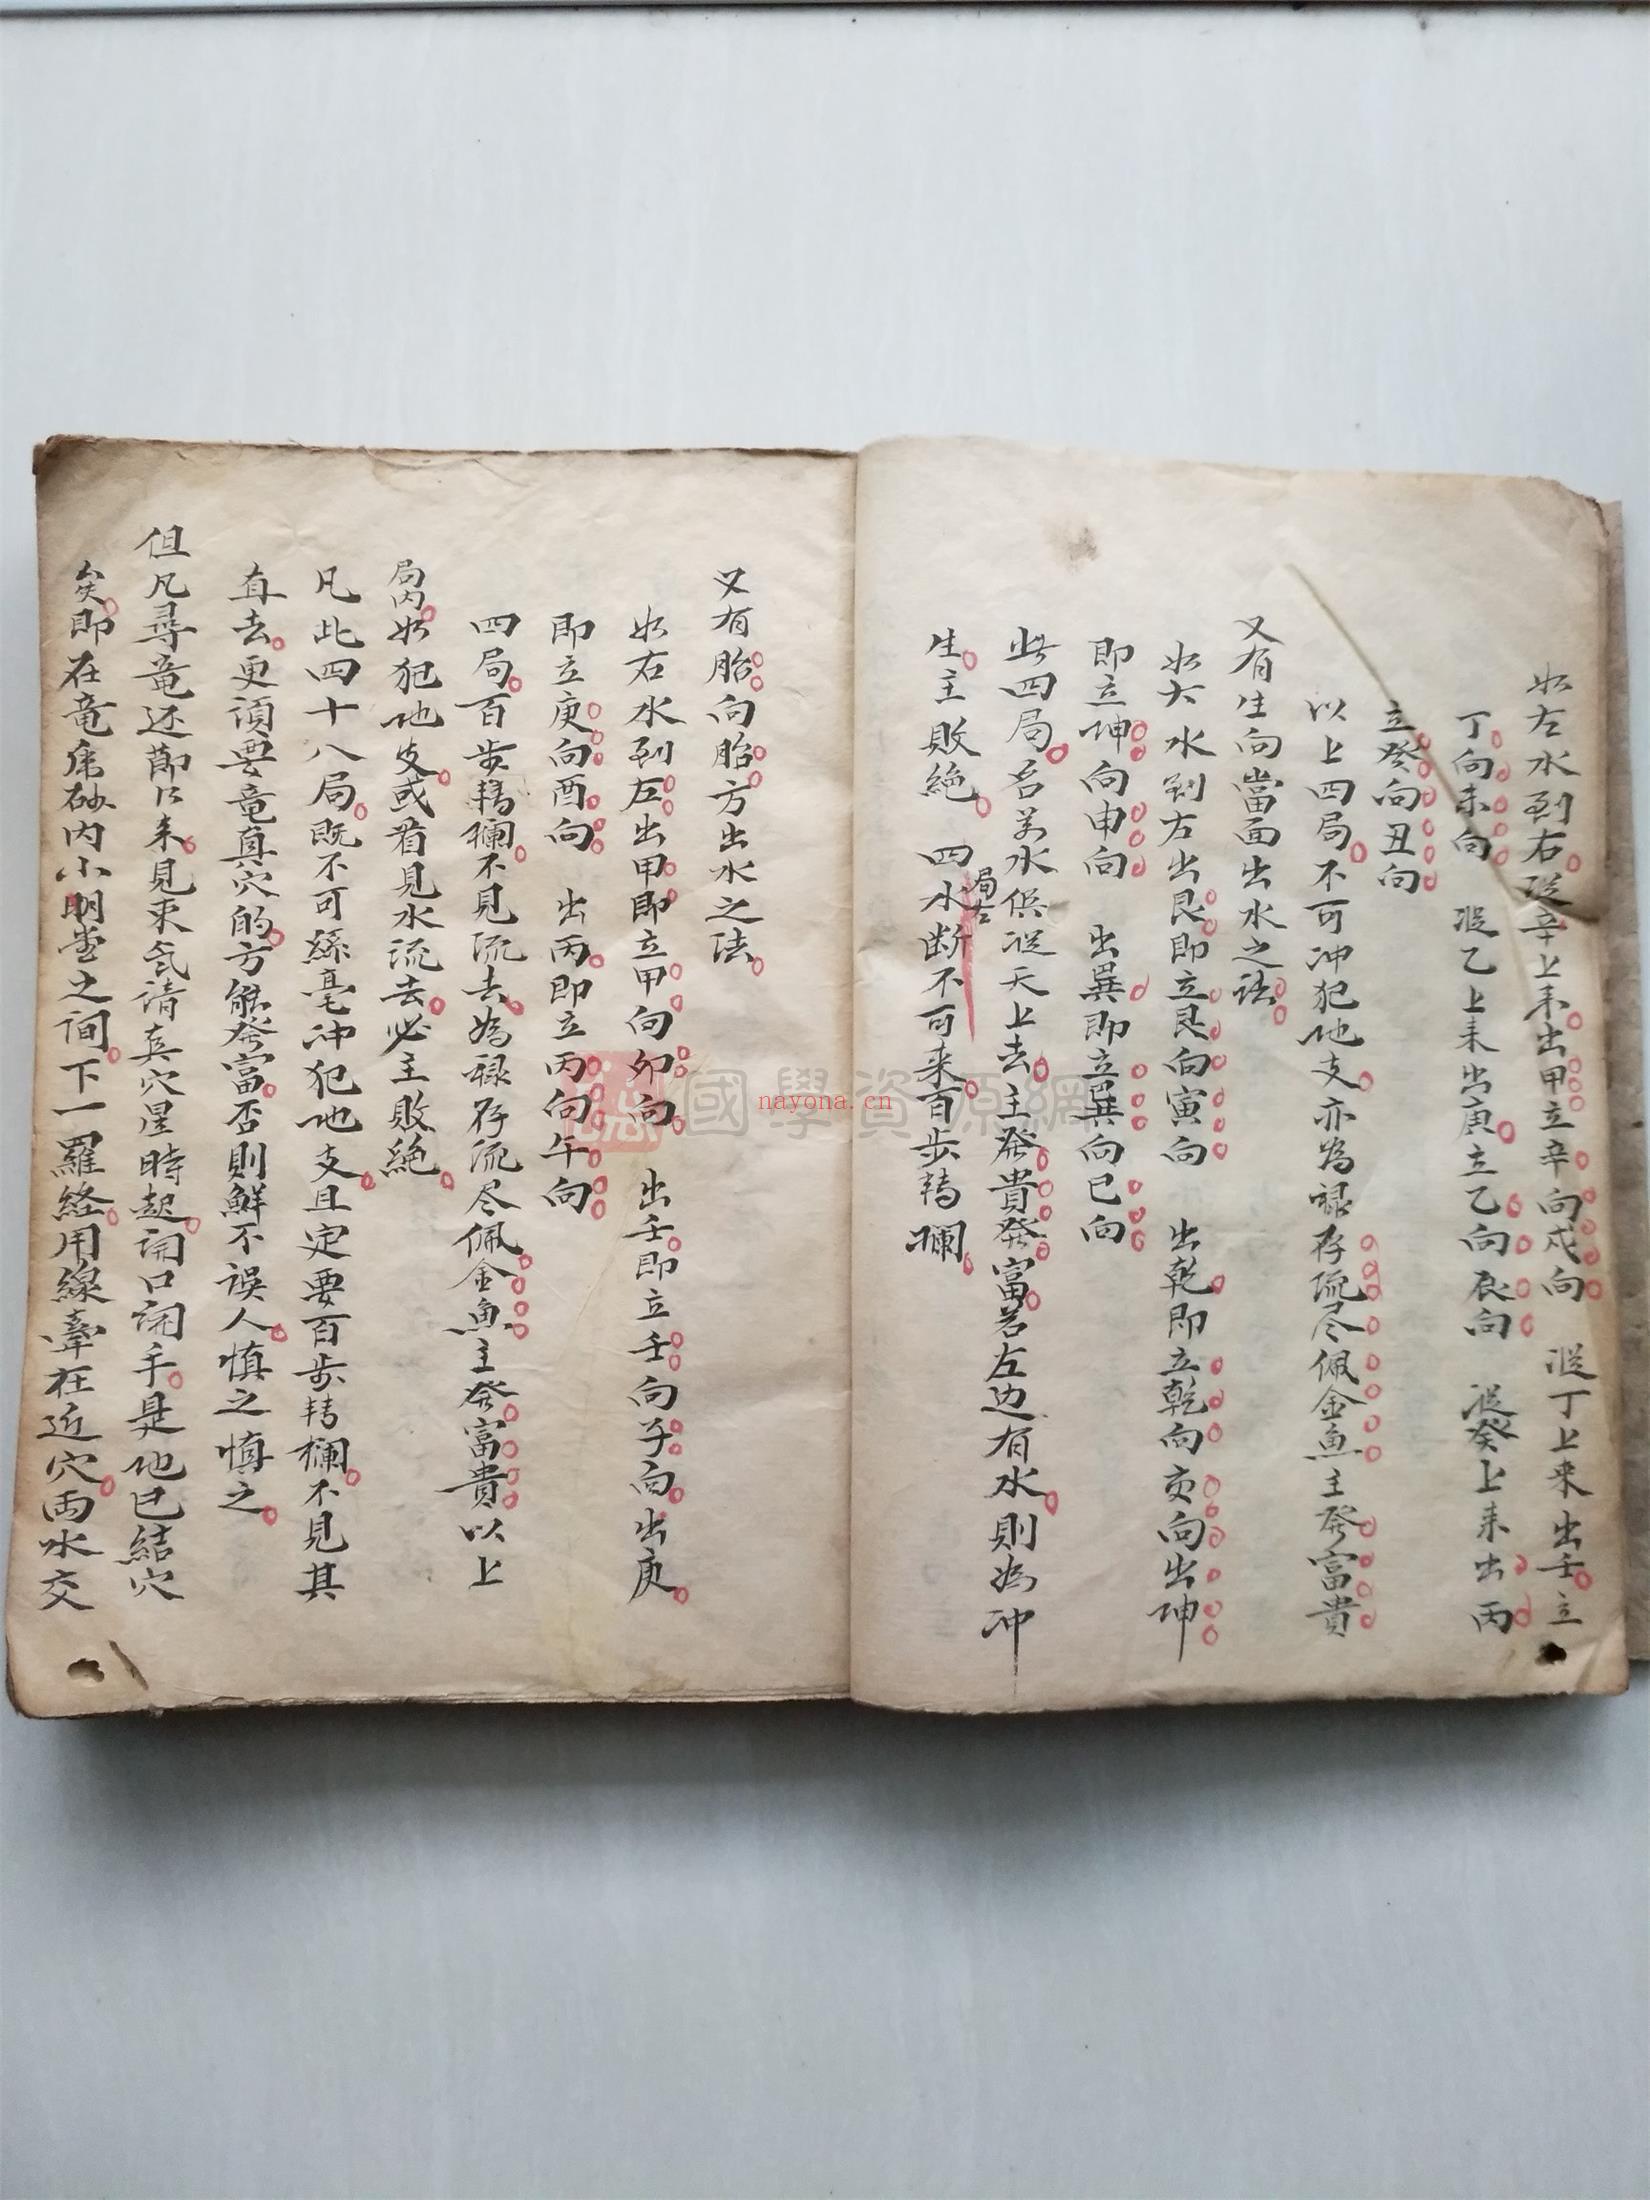 如左水到右從辛上来出甲立辛向戍向　從丁上来出壬立
丁向未向　從乙上来出庚立乙向辰向　從癸上来出丙
立癸向丑向
以上四局不可冲犯地支亦為禄存流尽佩金魚主發富貴
又有生向當面出水之法
如大水到左出艮即立艮向寅向　出乾即立乾向亥向出坤
即立坤向申向　出巽即立巽向巳向
此四局名為水俱從天上去主發貴發富若左边有水則為冲
生主敗絶　四水断不可来百步轉欄
局左
又有胎向胎方出水之法
如右水到左出甲即立甲向夘向　出壬即立壬向子向出庚
即立庚向酉向　出丙即立丙向午向
四局百步轉欄不見流去為禄存流尽佩金魚主發富貴以上
局内如犯地支或看見水流去必主敗絶
凡此四十八局既不可絲毫冲犯地支且定要百步轉欄不見其
直去更須要竜真穴的方能發富否則鮮不誤人慎之慎之
但凡尋竜还節以来見束氣清真穴星時起開口開手是他已結穴
矣即在竜虎砂内小明堂之间下一羅経用線牽在近穴两水交
國學資源網
nayona.cn